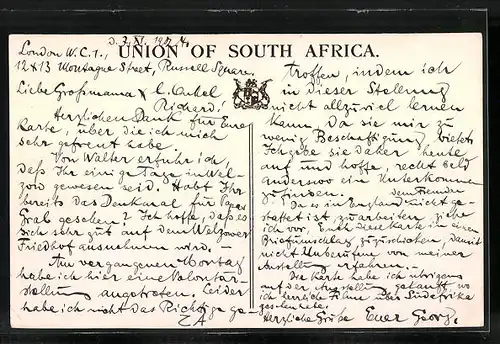 London W.C.1.,
UNION OF SOUTH AFRICA.
12 & 13 Montague Street, Russell Square.
Liebe Großmama & l. Onkel
Richard!
Herzlichen Dank für Eure
Karte, über die ich mich
sehr gefreut habe.
Von Walter erfuhr ich,
daß Ihr einige Tage in Wel-
zow gewesen seid. Habt Ihr
bereits das Denkmal für Papas
Grab gesehen? Ich hoffe, daß es
sich sehr gut auf dem Welzower
Friedhof ausnehmen wird. —
Am vergangenen Montag
habe ich hier eine Volontär-
stellung angetreten. Leider
habe ich nicht das Richtige ge-
troffen, indem ich
in dieser Stellung
nicht allzuviel lernen
kann. Da sie mir zu
wenig Beschäftigung bietet.
Ich gebe sie daher heute
auf und hoffe, recht bald
anderswo ein Unterkommen
zu finden.
Da es in England nicht ge-
stattet ist, zu arbeiten, ziehe
ich vor, Euch diese Karte in einem
Briefumschlag zuzuschicken, damit
nicht Unberufene von meiner
Anstellung erfahren.
Die Karte habe ich übrigens
auf der Ausstellung gekauft, wo
ich herrliche Filme über Südafrika
gesehen habe.
Herzliche Grüße Euer Georg.